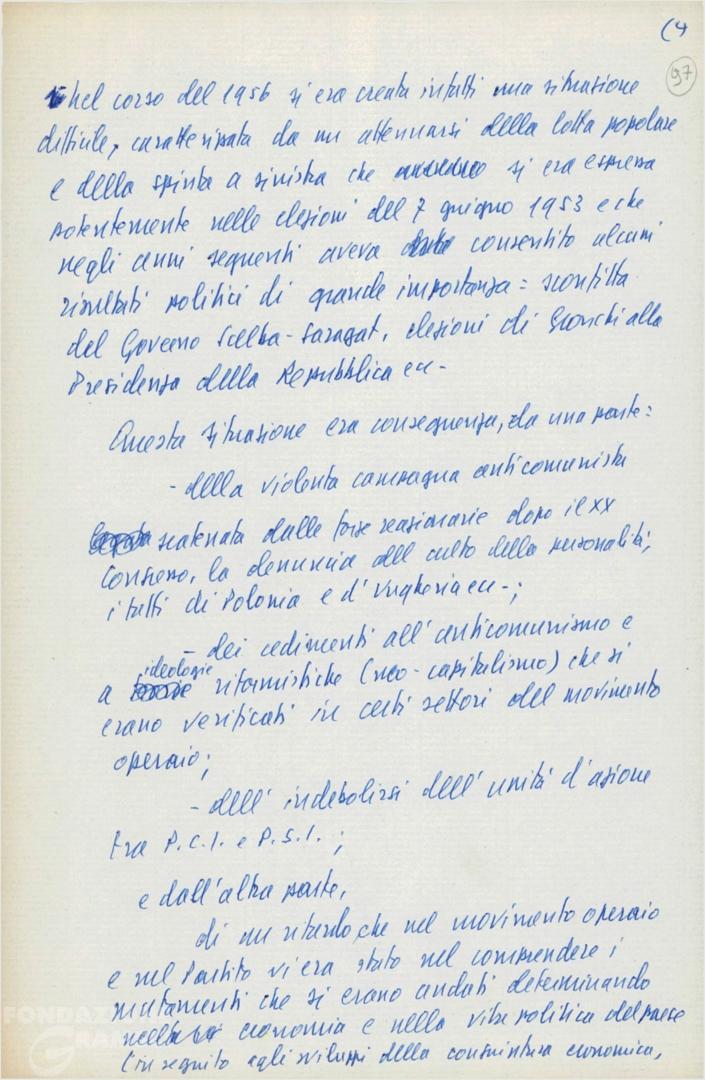 (4
97
nel corso del 1956 si era creata infatti una situazione
difficile, caratterizzata da un attenuarsi della lotta popolare
e della spinta a sinistra che si era espressa
potentemente nelle elezioni del 7 giugno 1953 e che
negli anni seguenti aveva consentito alcuni
risultati politici di grande importanza: sconfitta
del Governo Scelba-Saragat, elezioni di Gronchi alla
Presidenza della Repubblica ecc.
Questa situazione era conseguenza, da una parte:
- della violenta campagna anticomunista
scatenata dalle forze reazionarie dopo il XX
Congresso, la denuncia del culto della personalità,
i fatti di Polonia e d'Ungheria ecc.;
- dei cedimenti all'anticomunismo e
a ideologie riformistiche (neo-capitalismo) che si
erano verificati in certi settori del movimento
operaio;
- dell'indebolirsi dell'unità d'azione
tra P.C.I. e P.S.I.;
e dall'altra parte,
di un ritardo, che nel movimento operaio
e nel Partito vi era stato nel comprendere i
mutamenti che si erano andati determinando
nella economia e nella vita politica del paese
(in seguito agli sviluppi della congiuntura economica,
FONDAZI
GRAM